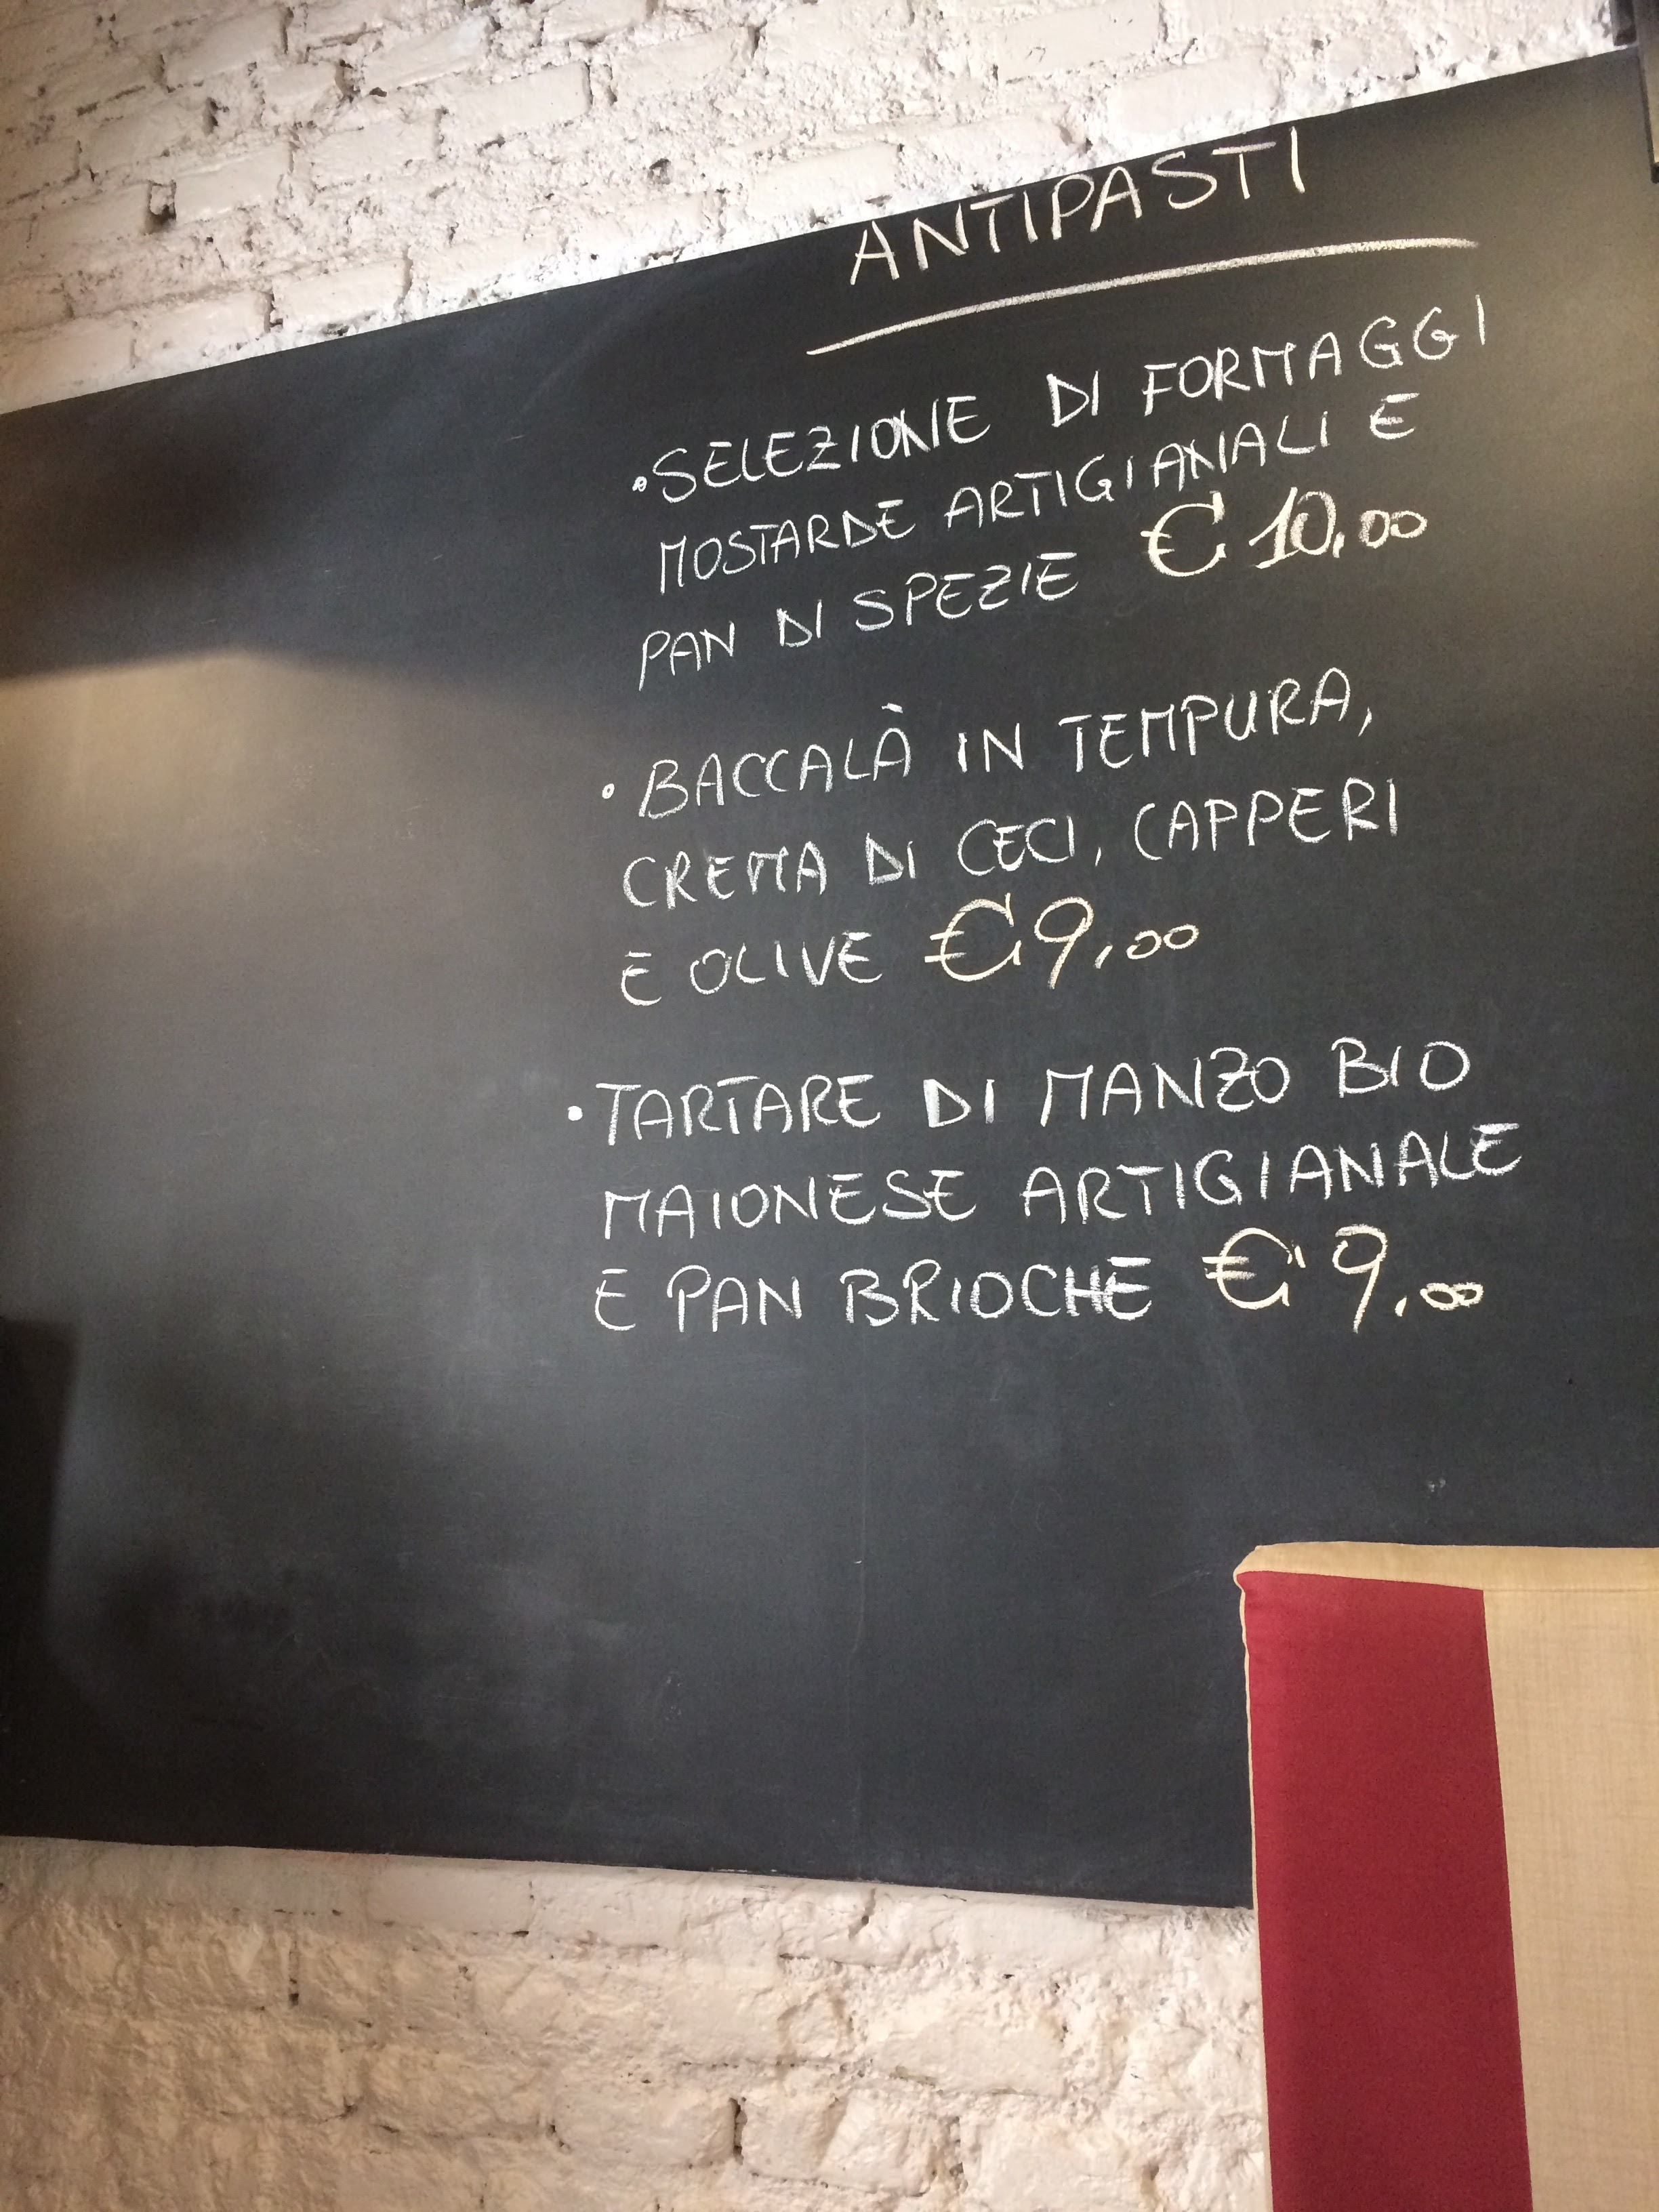 ANTIPASTI
•SELEZIONE DI FORMAGGI
MOSTARDE ARTIGIANALI E
PAN DI SPEZIE €10,00
•BACCALÀ IN TEMPURA,
CREMA DI CECI, CAPPERI
E OLIVE €9,00
•TARTARE DI MANZO BIO
MAIONESE ARTIGIANALE
E PAN BRIOCHE €9,00